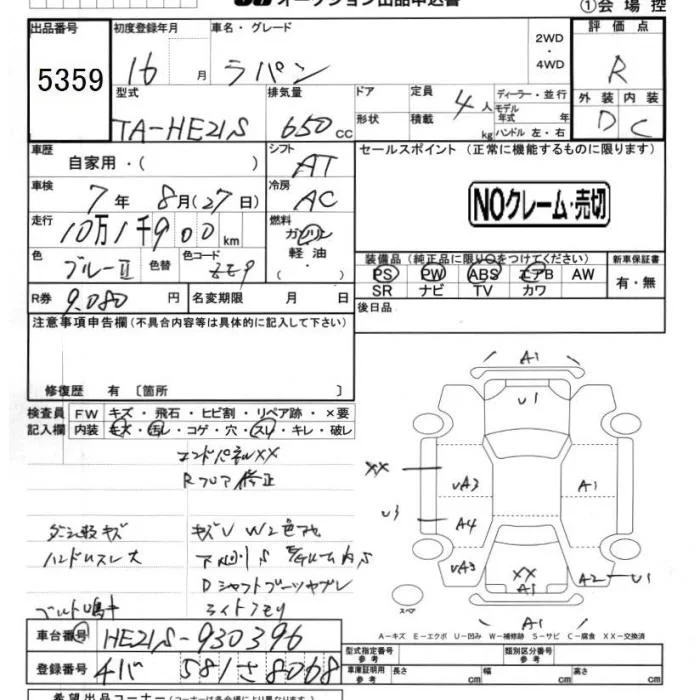 オークション出品申込書
①会場控
出品番号
5359
初度登録年月
16 月
車名・グレード
ラパン
2WD
・
4WD
評価点
R
外装 内装
D C
型式
TA-HE21S
排気量
650 cc
ドア
形状
定員 4 人
積載 kg
ディーラー・並行
モデル
年式 年
ハンドル 左・右
車歴
自家用・( )
シフト
AT
車検
7年 8月(27日)
冷房
AC
走行
10万1千900 km
燃料
ガソリン
軽油
( ・ )
色
ブルーII
色替
色コード
ZE9
R券 9,080 円
名変期限 月 日
セールスポイント(正常に機能するものに限ります)
NOクレーム・売切
装備品(純正品に限り○をつけてください)
PS PW ABS エアB AW
SR ナビ TV カワ
新車保証書
有・無
後日品
注意事項申告欄(不具合内容等は具体的に記入して下さい)
修復歴 有 〔箇所 〕
検査員
記入欄
FW キズ・飛石・ヒビ割・リペア跡・×要
内装 キズ・汚レ・コゲ・穴・スリ・キレ・破レ
エンドパネルXX
Rフロア修正
キズU W2
ハンドルスレ大
Dシャフトブーツヤブレ
ライトクモリ
A1
U1
XX
UA3
A1
U3
A4
UA3
XX
A1
A2
U1
A1
スペア
A-キズ E-エクボ U-凹み W-補修跡 S-サビ C-腐食 XX-交換済
車台番号
HE21S-930396
登録番号
581さ8068
型式指定番号
参考
類別区分番号
参考
車庫証明記載
参考
長さ cm
幅 cm
高さ cm
希望出品コーナー